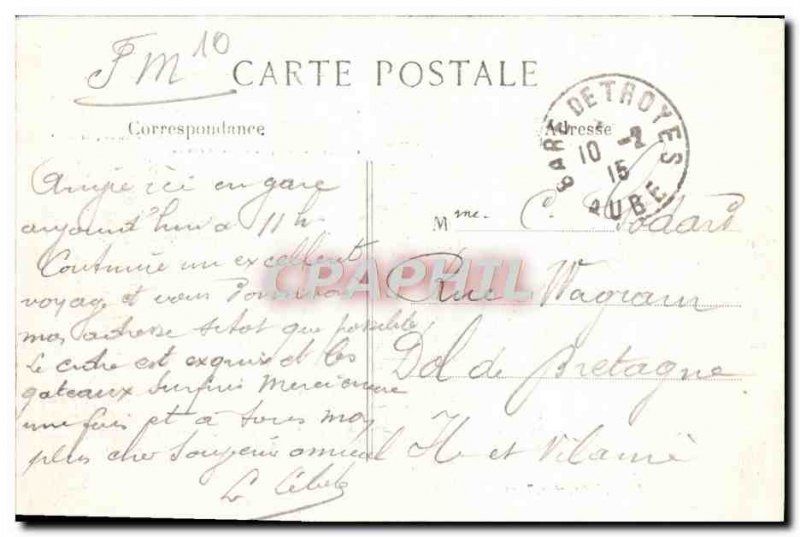 FM 10
CARTE POSTALE
Correspondance
Adresse
GARE DE TROYES
10 - 2
15
AUBE
Arrivé ici en gare
aujourd'hui à 11 h
Continue un excellent
voyage et vous donnerai
mon adresse sitot que possible
Le cidre est exquis et les
gateaux surfins Merci encore
une fois et à tous mon
plus cher souvenir amical
L.
Mme. C.
Rue Wagram
Dol de Bretagne
Ile et Vilaine
CPAPHIL